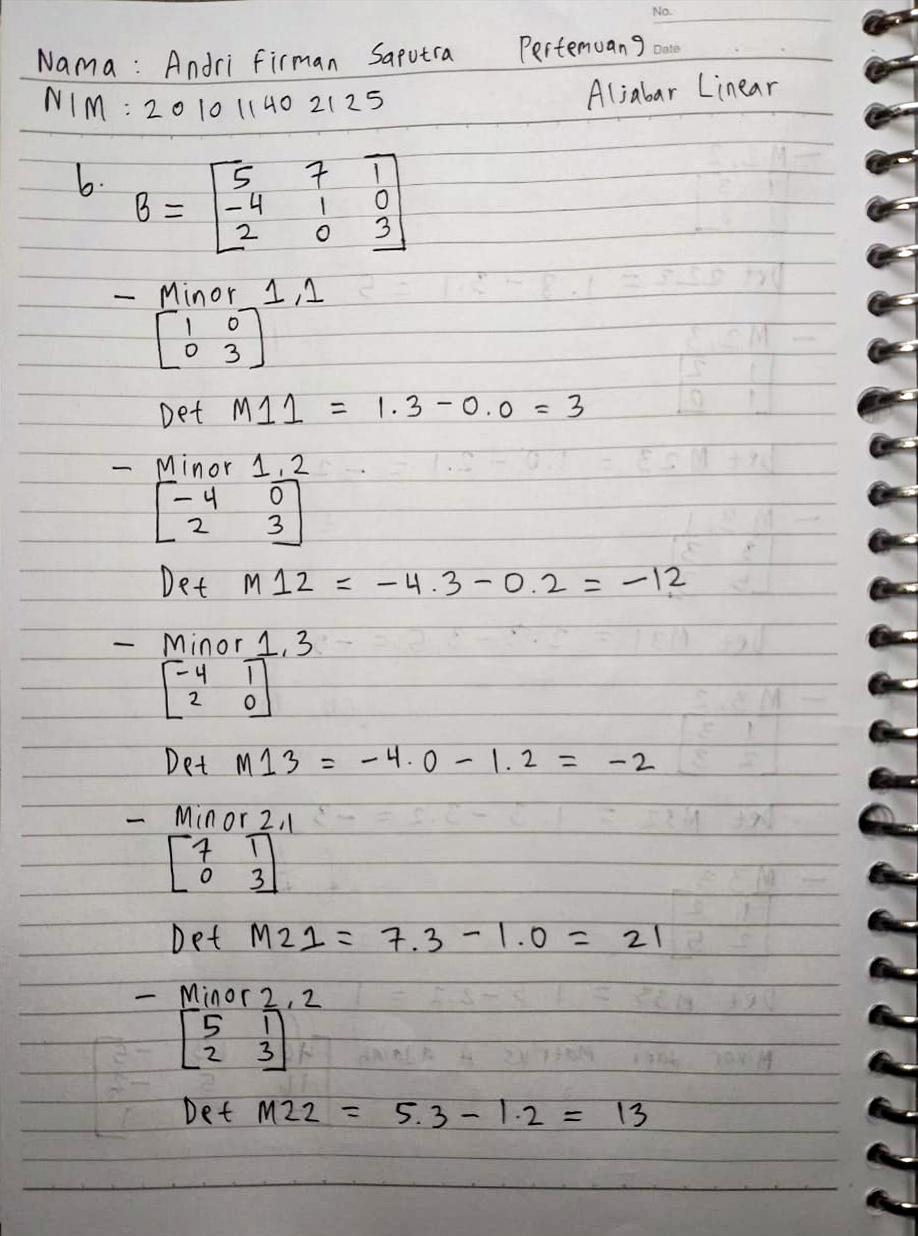 No.
Nama : Andri Firman Saputra Pertemuan 9 Date
NIM : 201011402125 Aljabar Linear
b. B = [5 7 1
-4 1 0
2 0 3]
- Minor 1,1
[1 0
0 3]
Det M11 = 1.3 - 0.0 = 3
- Minor 1,2
[-4 0
2 3]
Det M12 = -4.3 - 0.2 = -12
- Minor 1,3
[-4 1
2 0]
Det M13 = -4.0 - 1.2 = -2
- Minor 2,1
[7 1
0 3]
Det M21 = 7.3 - 1.0 = 21
- Minor 2,2
[5 1
2 3]
Det M22 = 5.3 - 1.2 = 13